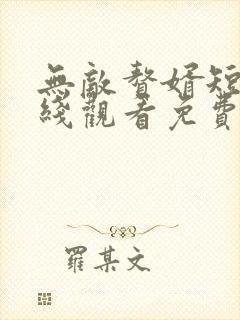 無敵贅婿短
綫觀看免費
羅某文